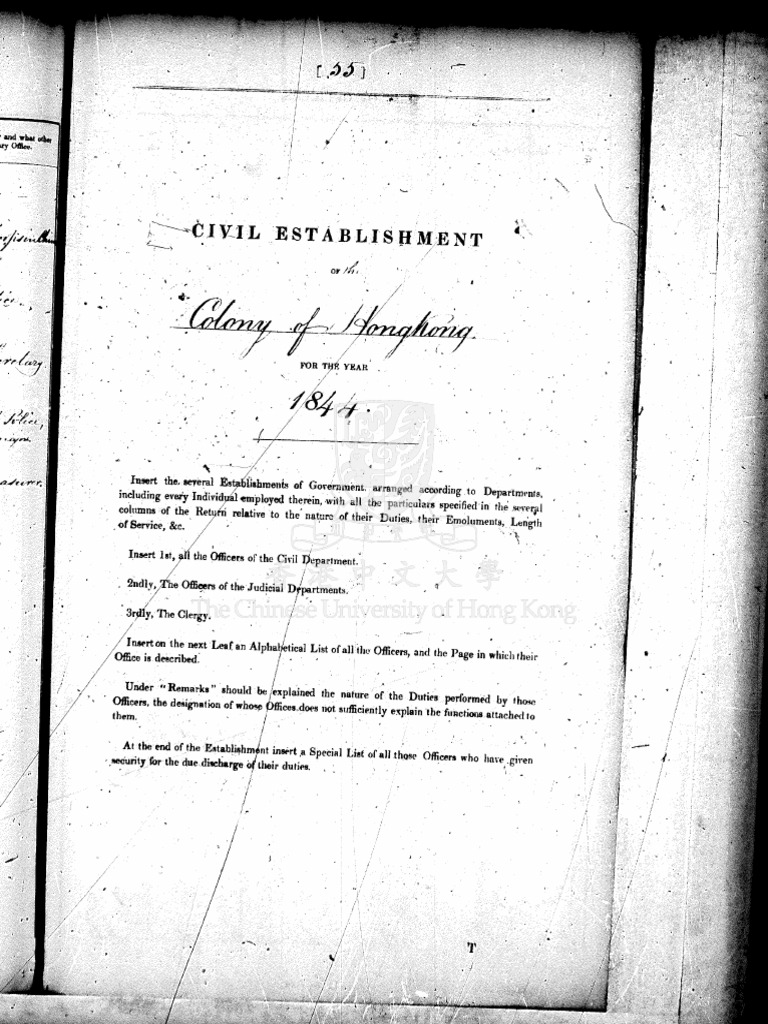 and what other
ry Office.
[ 55 ]
CIVIL ESTABLISHMENT
OF the
Colony of Hongkong.
FOR THE YEAR
1844.
Insert the several Establishments of Government, arranged according to Departments,
including every Individual employed therein, with all the particulars specified in the several
columns of the Return relative to the nature of their Duties, their Emoluments, Length
of Service, &c.
Insert 1st, all the Officers of the Civil Department.
2ndly, The Officers of the Judicial Departments.
香港中文大學
The Chinese University of Hong Kong
3rdly, The Clergy.
Insert on the next Leaf an Alphabetical List of all the Officers, and the Page in which their
Office is described.
Under "Remarks" should be explained the nature of the Duties performed by those
Officers, the designation of whose Offices does not sufficiently explain the functions attached to
them.
At the end of the Establishment insert a Special List of all those Officers who have given
security for the due discharge of their duties.
T